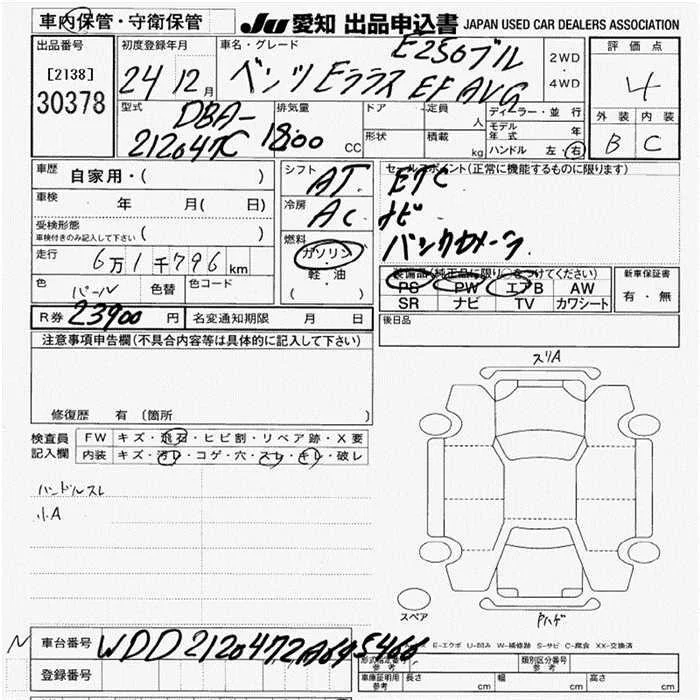 車内保管・守衛保管
JU 愛知 出品申込書 JAPAN USED CAR DEALERS ASSOCIATION
出品番号
[2138]
30378
初度登録年月
24 12月
車名・グレード
E250ブル
ベンツ Eクラス EF AVG
2WD
・
4WD
評価点
4
外装 内装
B C
型式
DBA-
212047C
排気量
1800 CC
ドア
形状
定員 人
積載 kg
ディーラー・並行
モデル年式 年
ハンドル 左・右
車歴 自家用・( )
車検 年 月( 日)
受検形態
車検付きのみ記入して下さい ( )
走行 6万1千796km
色 パール
色替
色コード
シフト AT
冷房 AC
燃料
ガソリン
・
軽・油
( )
セールスポイント(正常に機能するものに限ります)
ETC
ナビ
バックカメラ
装備品(純正品に限り○をつけてください)
PS PW エアB AW
SR ナビ TV カワシート
新車保証書
有・無
R券 23900円 名変通知期限 月 日
後日品
注意事項申告欄(不具合内容等は具体的に記入して下さい)
修復歴 有(箇所 )
検査員
記入欄
FW キズ・飛石・ヒビ割・リペア跡・X要
内装 キズ・汚レ・コゲ・穴・スレ・キレ・破レ
ハンドルスレ
小A
スリA
スペア
Pハゲ
N
車台番号 WDD2120472A645466
登録番号
E-エクボ U-凹み W-補修跡 S-サビ C-腐食 XX-交換済
形式指定番号
参考
類別区分番号
参考
車庫証明用
参考
長さ cm 幅 cm 高さ cm